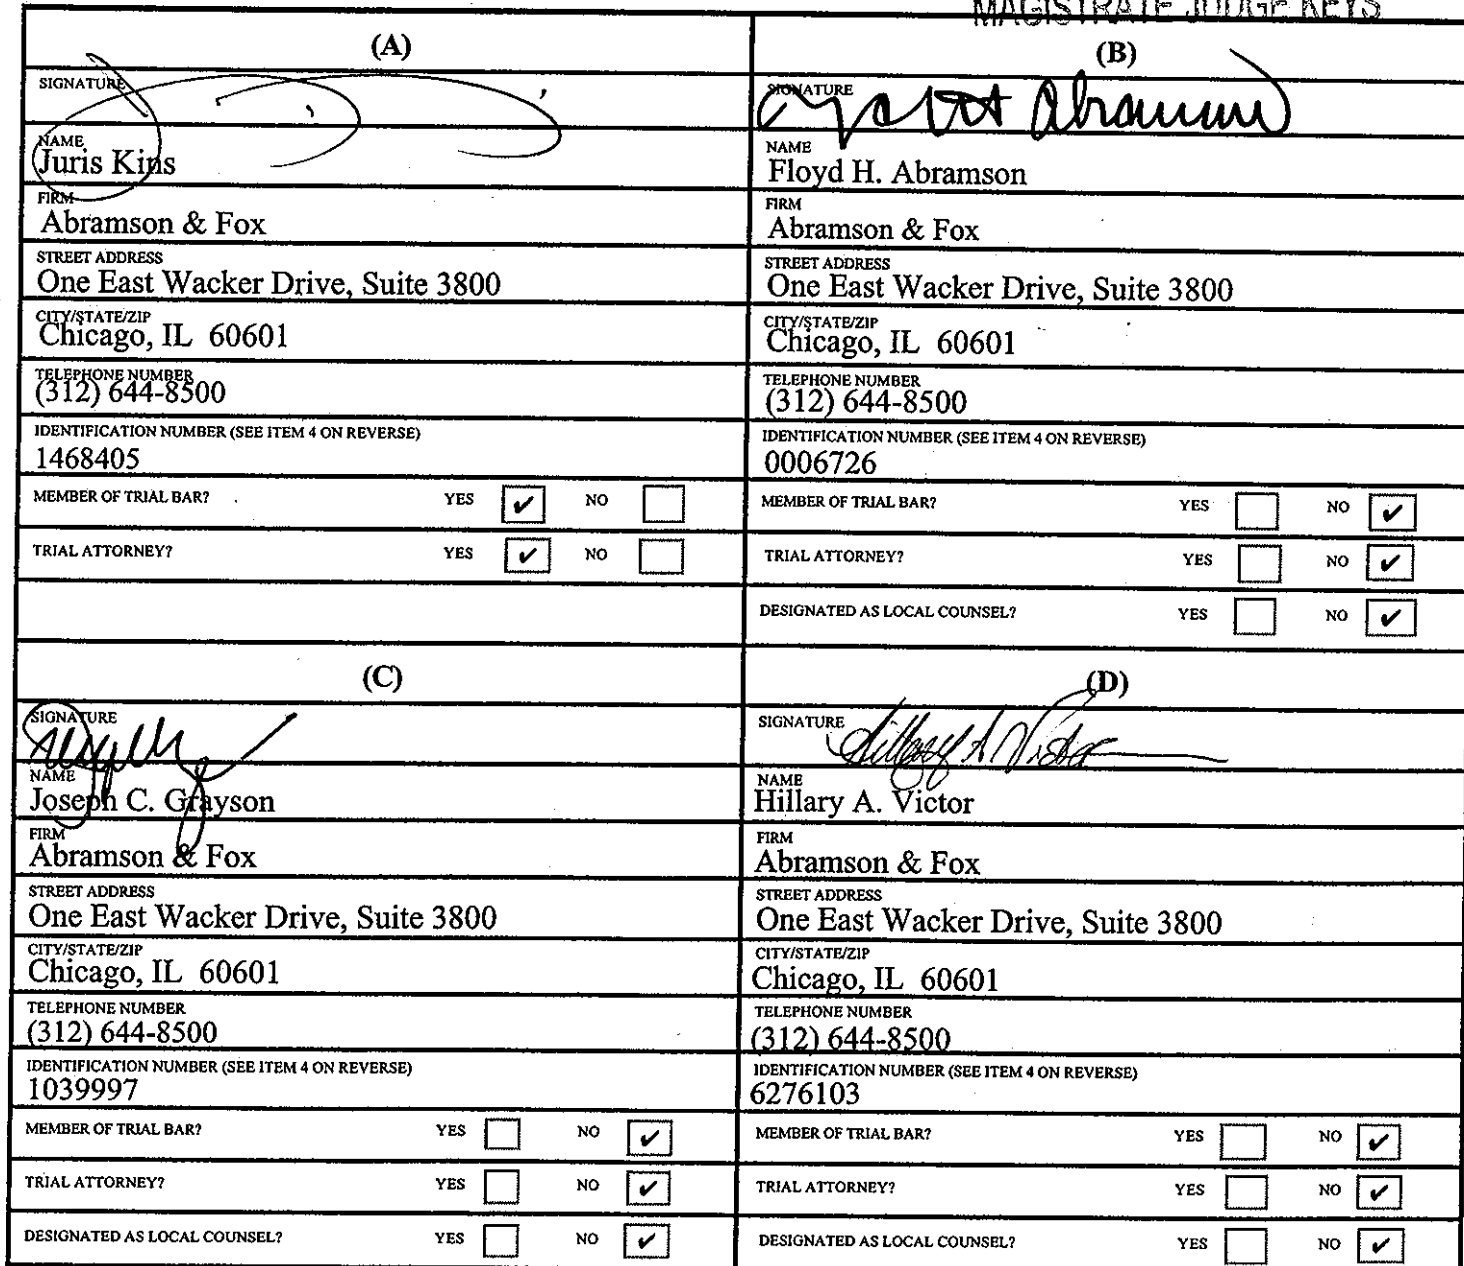 MAGISTRATE JUDGE KEYS
(A)
SIGNATURE
NAME
Juris Kins
FIRM
Abramson & Fox
STREET ADDRESS
One East Wacker Drive, Suite 3800
CITY/STATE/ZIP
Chicago, IL 60601
TELEPHONE NUMBER
(312) 644-8500
IDENTIFICATION NUMBER (SEE ITEM 4 ON REVERSE)
1468405
MEMBER OF TRIAL BAR? YES ✔ NO
TRIAL ATTORNEY? YES ✔ NO
(B)
SIGNATURE
Abramson
NAME
Floyd H. Abramson
FIRM
Abramson & Fox
STREET ADDRESS
One East Wacker Drive, Suite 3800
CITY/STATE/ZIP
Chicago, IL 60601
TELEPHONE NUMBER
(312) 644-8500
IDENTIFICATION NUMBER (SEE ITEM 4 ON REVERSE)
0006726
MEMBER OF TRIAL BAR? YES NO ✔
TRIAL ATTORNEY? YES NO ✔
DESIGNATED AS LOCAL COUNSEL? YES NO ✔
(C)
SIGNATURE
NAME
Joseph C. Grayson
FIRM
Abramson & Fox
STREET ADDRESS
One East Wacker Drive, Suite 3800
CITY/STATE/ZIP
Chicago, IL 60601
TELEPHONE NUMBER
(312) 644-8500
IDENTIFICATION NUMBER (SEE ITEM 4 ON REVERSE)
1039997
MEMBER OF TRIAL BAR? YES NO ✔
TRIAL ATTORNEY? YES NO ✔
DESIGNATED AS LOCAL COUNSEL? YES NO ✔
(D)
SIGNATURE
Hillary A Victor
NAME
Hillary A. Victor
FIRM
Abramson & Fox
STREET ADDRESS
One East Wacker Drive, Suite 3800
CITY/STATE/ZIP
Chicago, IL 60601
TELEPHONE NUMBER
(312) 644-8500
IDENTIFICATION NUMBER (SEE ITEM 4 ON REVERSE)
6276103
MEMBER OF TRIAL BAR? YES NO ✔
TRIAL ATTORNEY? YES NO ✔
DESIGNATED AS LOCAL COUNSEL? YES NO ✔